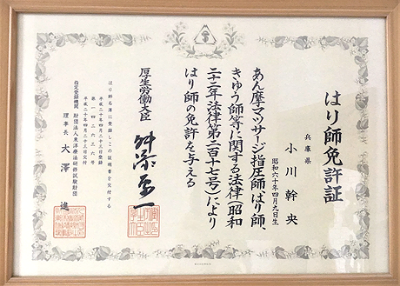 はり師免許証
兵庫県
小川幹央
昭和六十年四月九日生
あん摩マツサージ指圧師、はり師、
きゆう師等に関する法律(昭和
二十二年法律第二百十七号)により
はり師の免許を与える
厚生労働大臣
舛添要一
平成二十年四月二十三日
理事長 大澤進